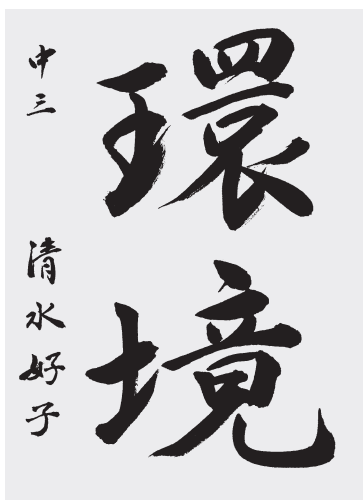 環境
中三 清水好子